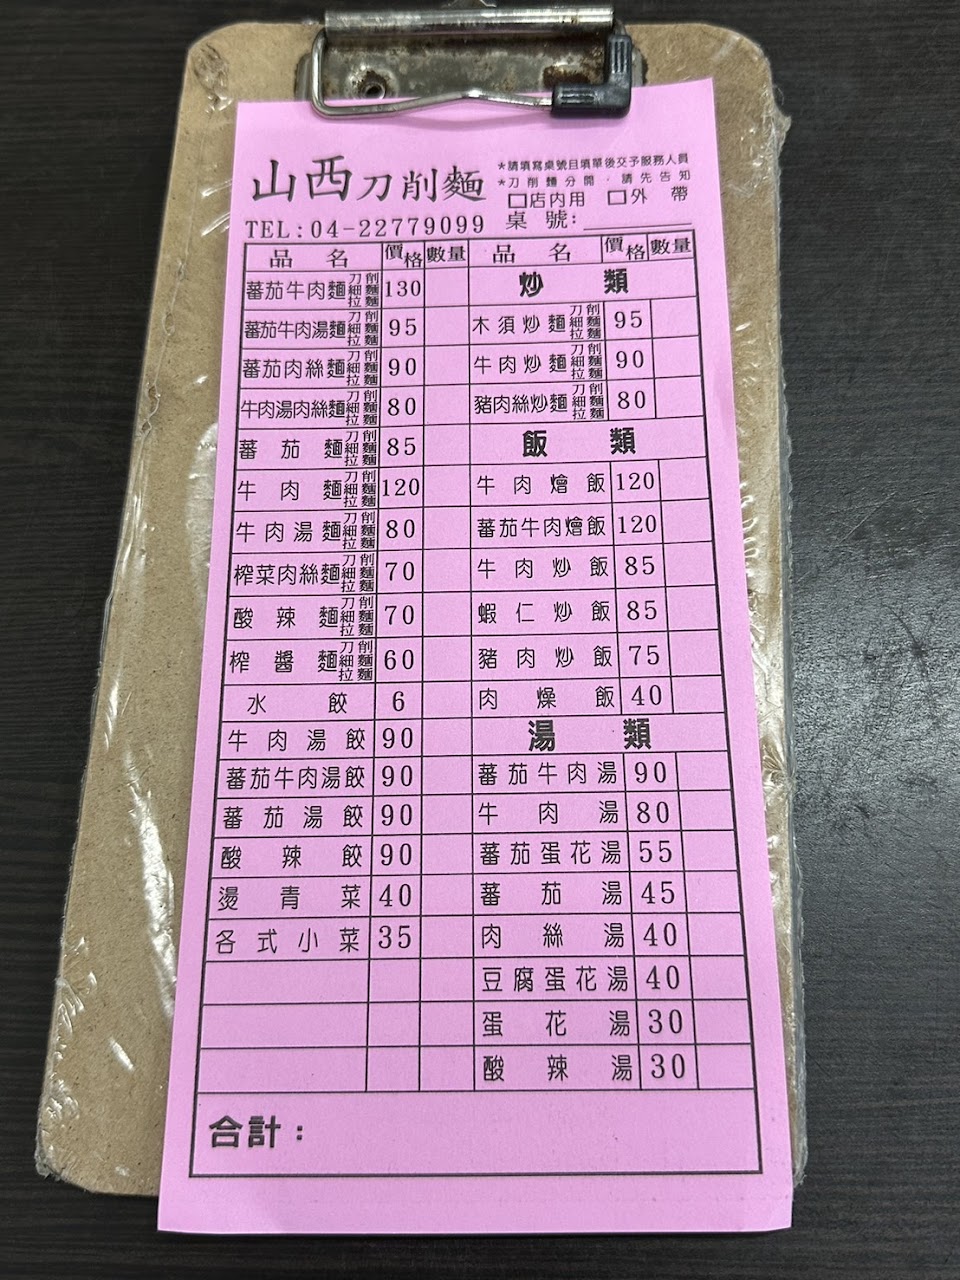 山西刀削麵
*請填寫桌號且填單後交予服務人員
*刀削麵分開，請先告知
□店內用 □外帶
TEL:04-22779099
桌號:
品名 價格 數量
蕃茄牛肉麵 刀削 細麵 拉麵 130
蕃茄牛肉湯麵 刀削 細麵 拉麵 95
蕃茄肉絲麵 刀削 細麵 拉麵 90
牛肉湯肉絲麵 刀削 細麵 拉麵 80
蕃茄麵 刀削 細麵 拉麵 85
牛肉麵 刀削 細麵 拉麵 120
牛肉湯麵 刀削 細麵 拉麵 80
榨菜肉絲麵 刀削 細麵 拉麵 70
酸辣麵 刀削 細麵 拉麵 70
榨醬麵 刀削 細麵 拉麵 60
水餃 6
牛肉湯餃 90
蕃茄牛肉湯餃 90
蕃茄湯餃 90
酸辣餃 90
燙青菜 40
各式小菜 35
品名 價格 數量
炒類
木須炒麵 刀削 細麵 拉麵 95
牛肉炒麵 刀削 細麵 拉麵 90
豬肉絲炒麵 刀削 細麵 拉麵 80
飯類
牛肉燴飯 120
蕃茄牛肉燴飯 120
牛肉炒飯 85
蝦仁炒飯 85
豬肉炒飯 75
肉燥飯 40
湯類
蕃茄牛肉湯 90
牛肉湯 80
蕃茄蛋花湯 55
蕃茄湯 45
肉絲湯 40
豆腐蛋花湯 40
蛋花湯 30
酸辣湯 30
合計：